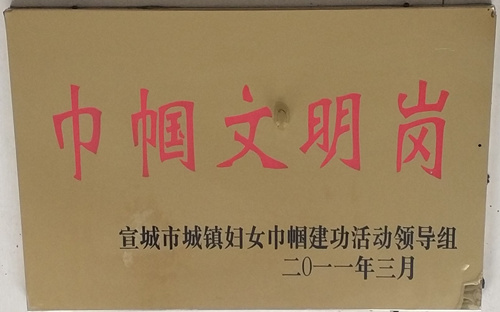 巾帼文明岗
宣城市城镇妇女巾帼建功活动领导组
二〇一一年三月